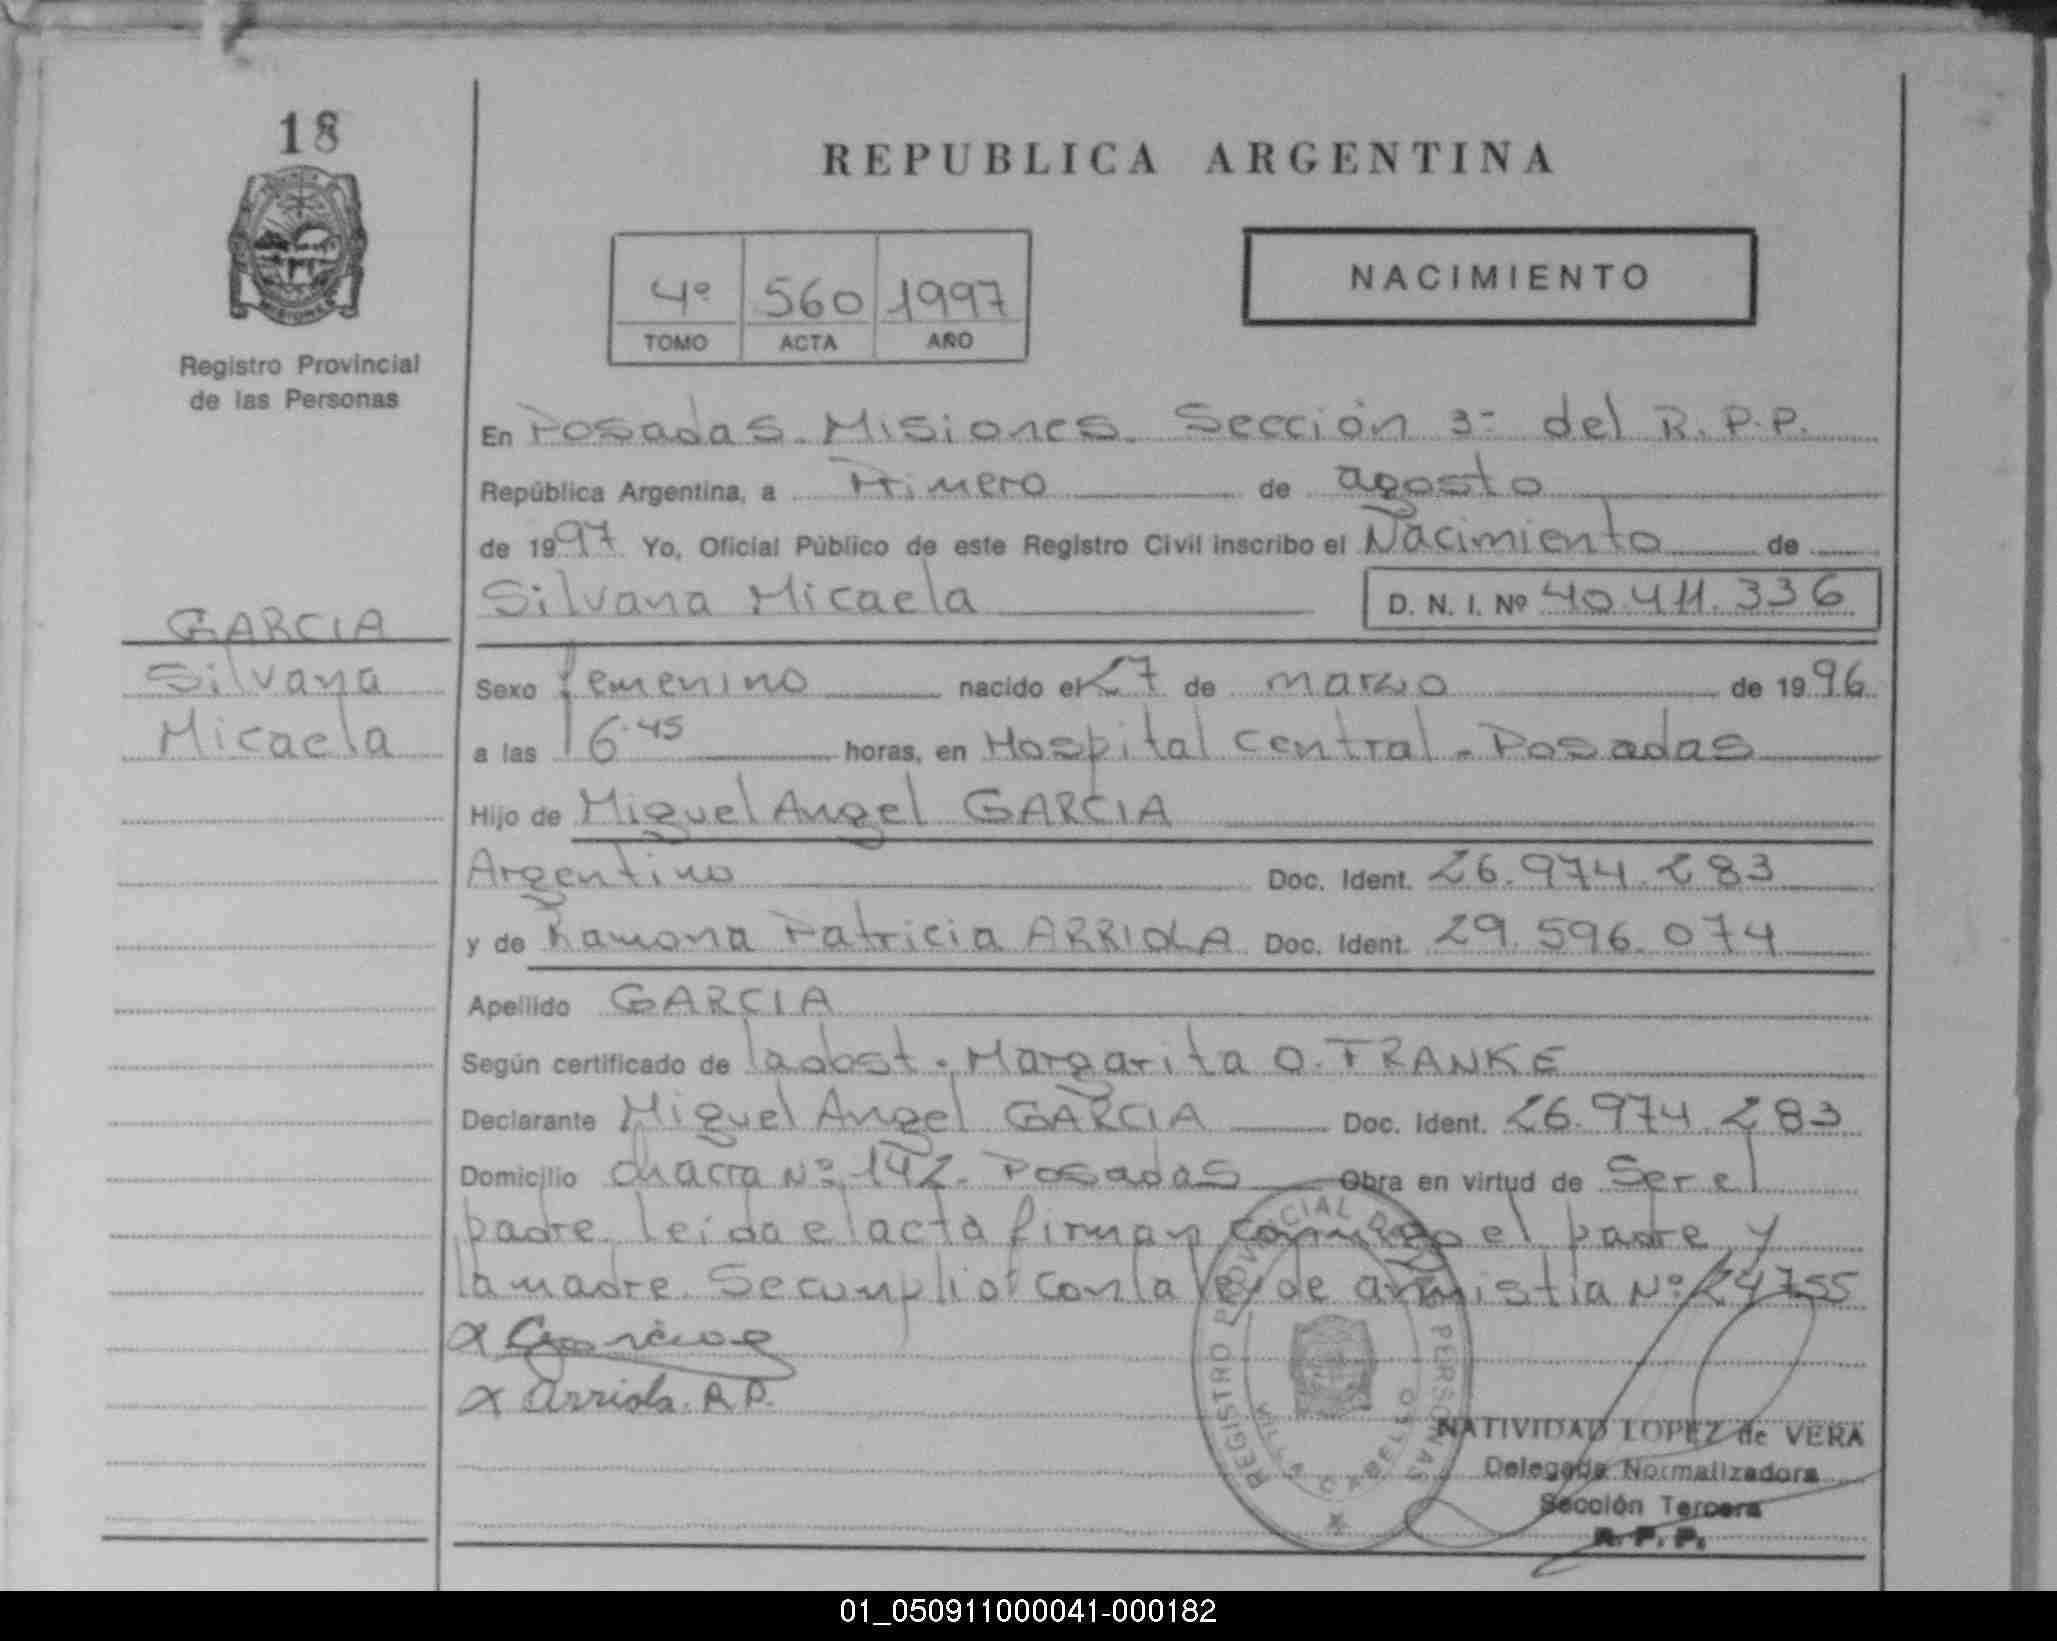 18
REPUBLICA ARGENTINA
NACIMIENTO
4º 560 1997
TOMO ACTA AÑO
Registro Provincial
de las Personas
En Posadas. Misiones. Sección 3ª del R.P.P.
República Argentina, a Primero de agosto
de 1997 Yo, Oficial Público de este Registro Civil inscribo el Nacimiento de
Silvana Micaela D. N. I. Nº 40.411.336
GARCIA
Silvana
Micaela
Sexo femenino nacido el 27 de marzo de 1996
a las 16.45 horas, en Hospital Central - Posadas
Hijo de Miguel Angel GARCIA
Argentino Doc. Ident. 26.974.283
y de Ramona Patricia ARRIOLA Doc. Ident. 29.596.074
Apellido GARCIA
Según certificado de la obst. Margarita O. FRANKE
Declarante Miguel Angel GARCIA Doc. Ident. 26.974.283
Domicilio chacra Nº 142. Posadas Obra en virtud de Ser el
padre, leída el acta firman conmigo el padre y
la madre. Se cumplió con la ley de amnistia Nº 24755
x Garcia
x Arriola. R P.
REGISTRO PROVINCIAL DE LAS PERSONAS
VILLA CABELLO
NATIVIDAD LOPEZ de VERA
Delegada Normalizadora
Sección Tercera
R. P. P.
01_050911000041-000182